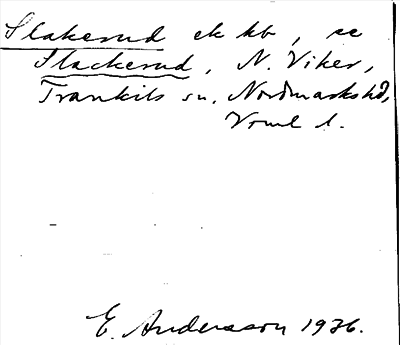 Slakerud ek kb, se
Slackerud, N. Viker,
Trankils sn, Nordmarks hd,
Vrml l.
E. Andersson 1936.